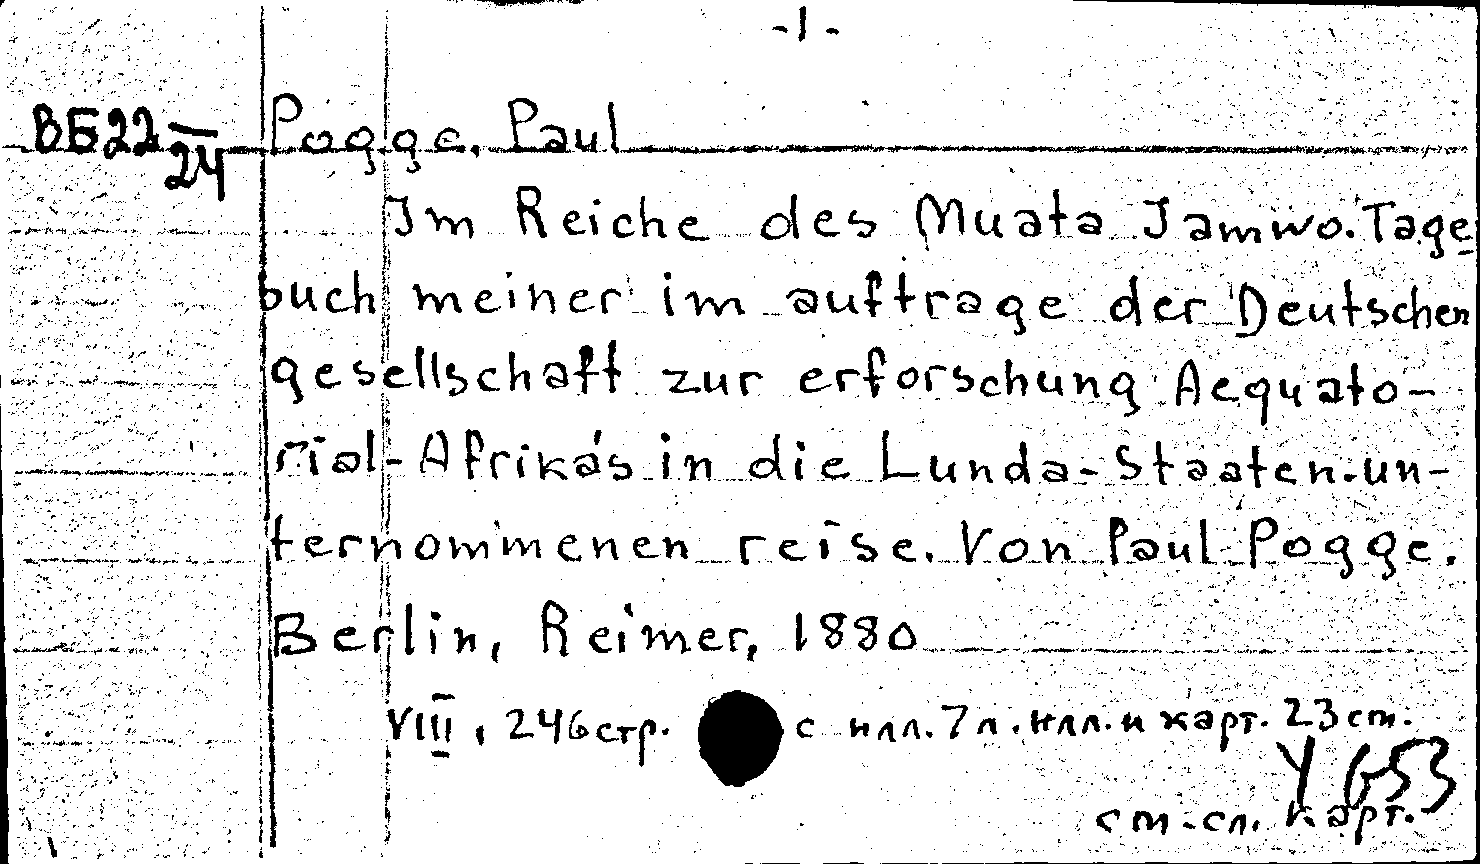 -1-
ВБ22 — Pogge, Paul
24
Im Reiche des Muata Jamwo. Tage
buch meiner im auftrage der Deutschen
gesellschaft zur erforschung Aequato-
rial-Afrika's in die Lunda-Staaten un-
ternommenen reise. Von Paul Pogge.
Berlin, Reimer, 1880
VIII, 246 стр. с илл. 7 л. илл. и карт. 23 cm.
У 653
см. сл. карт.